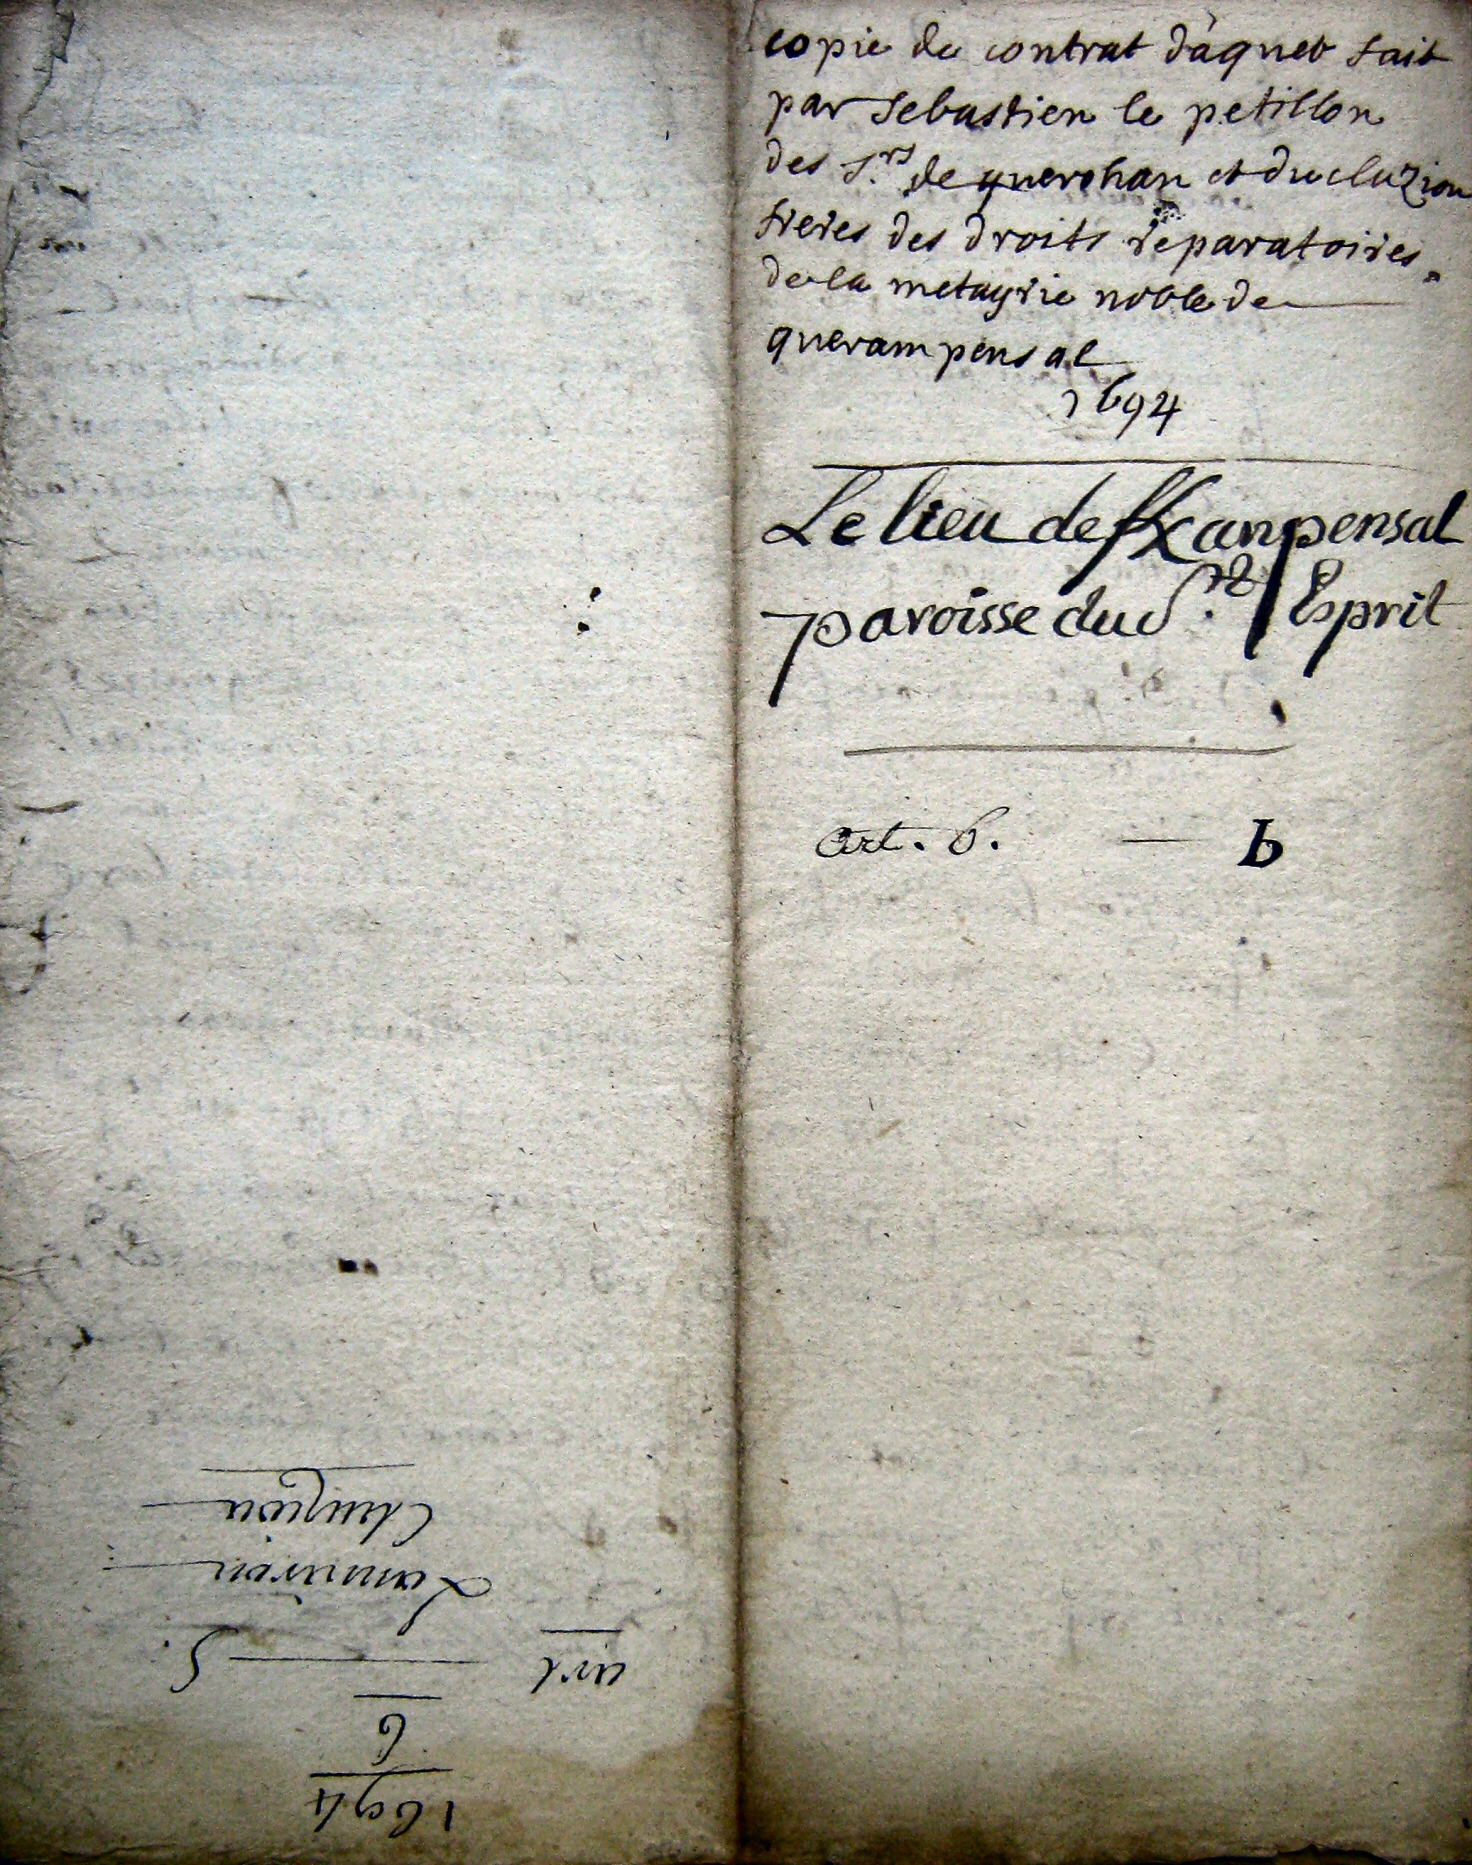 copie de contrat d'aquet fait
par Sebastien le petillon
des S.rs de querohan et du cluzion
freres des droits reparatoires
de la metayrie noble de
querampensal
1694
Le lieu de Kanpensal
paroisse du St. Esprit
art. 6. — b
1694
6
art — 5.
Lannion
Cluzion